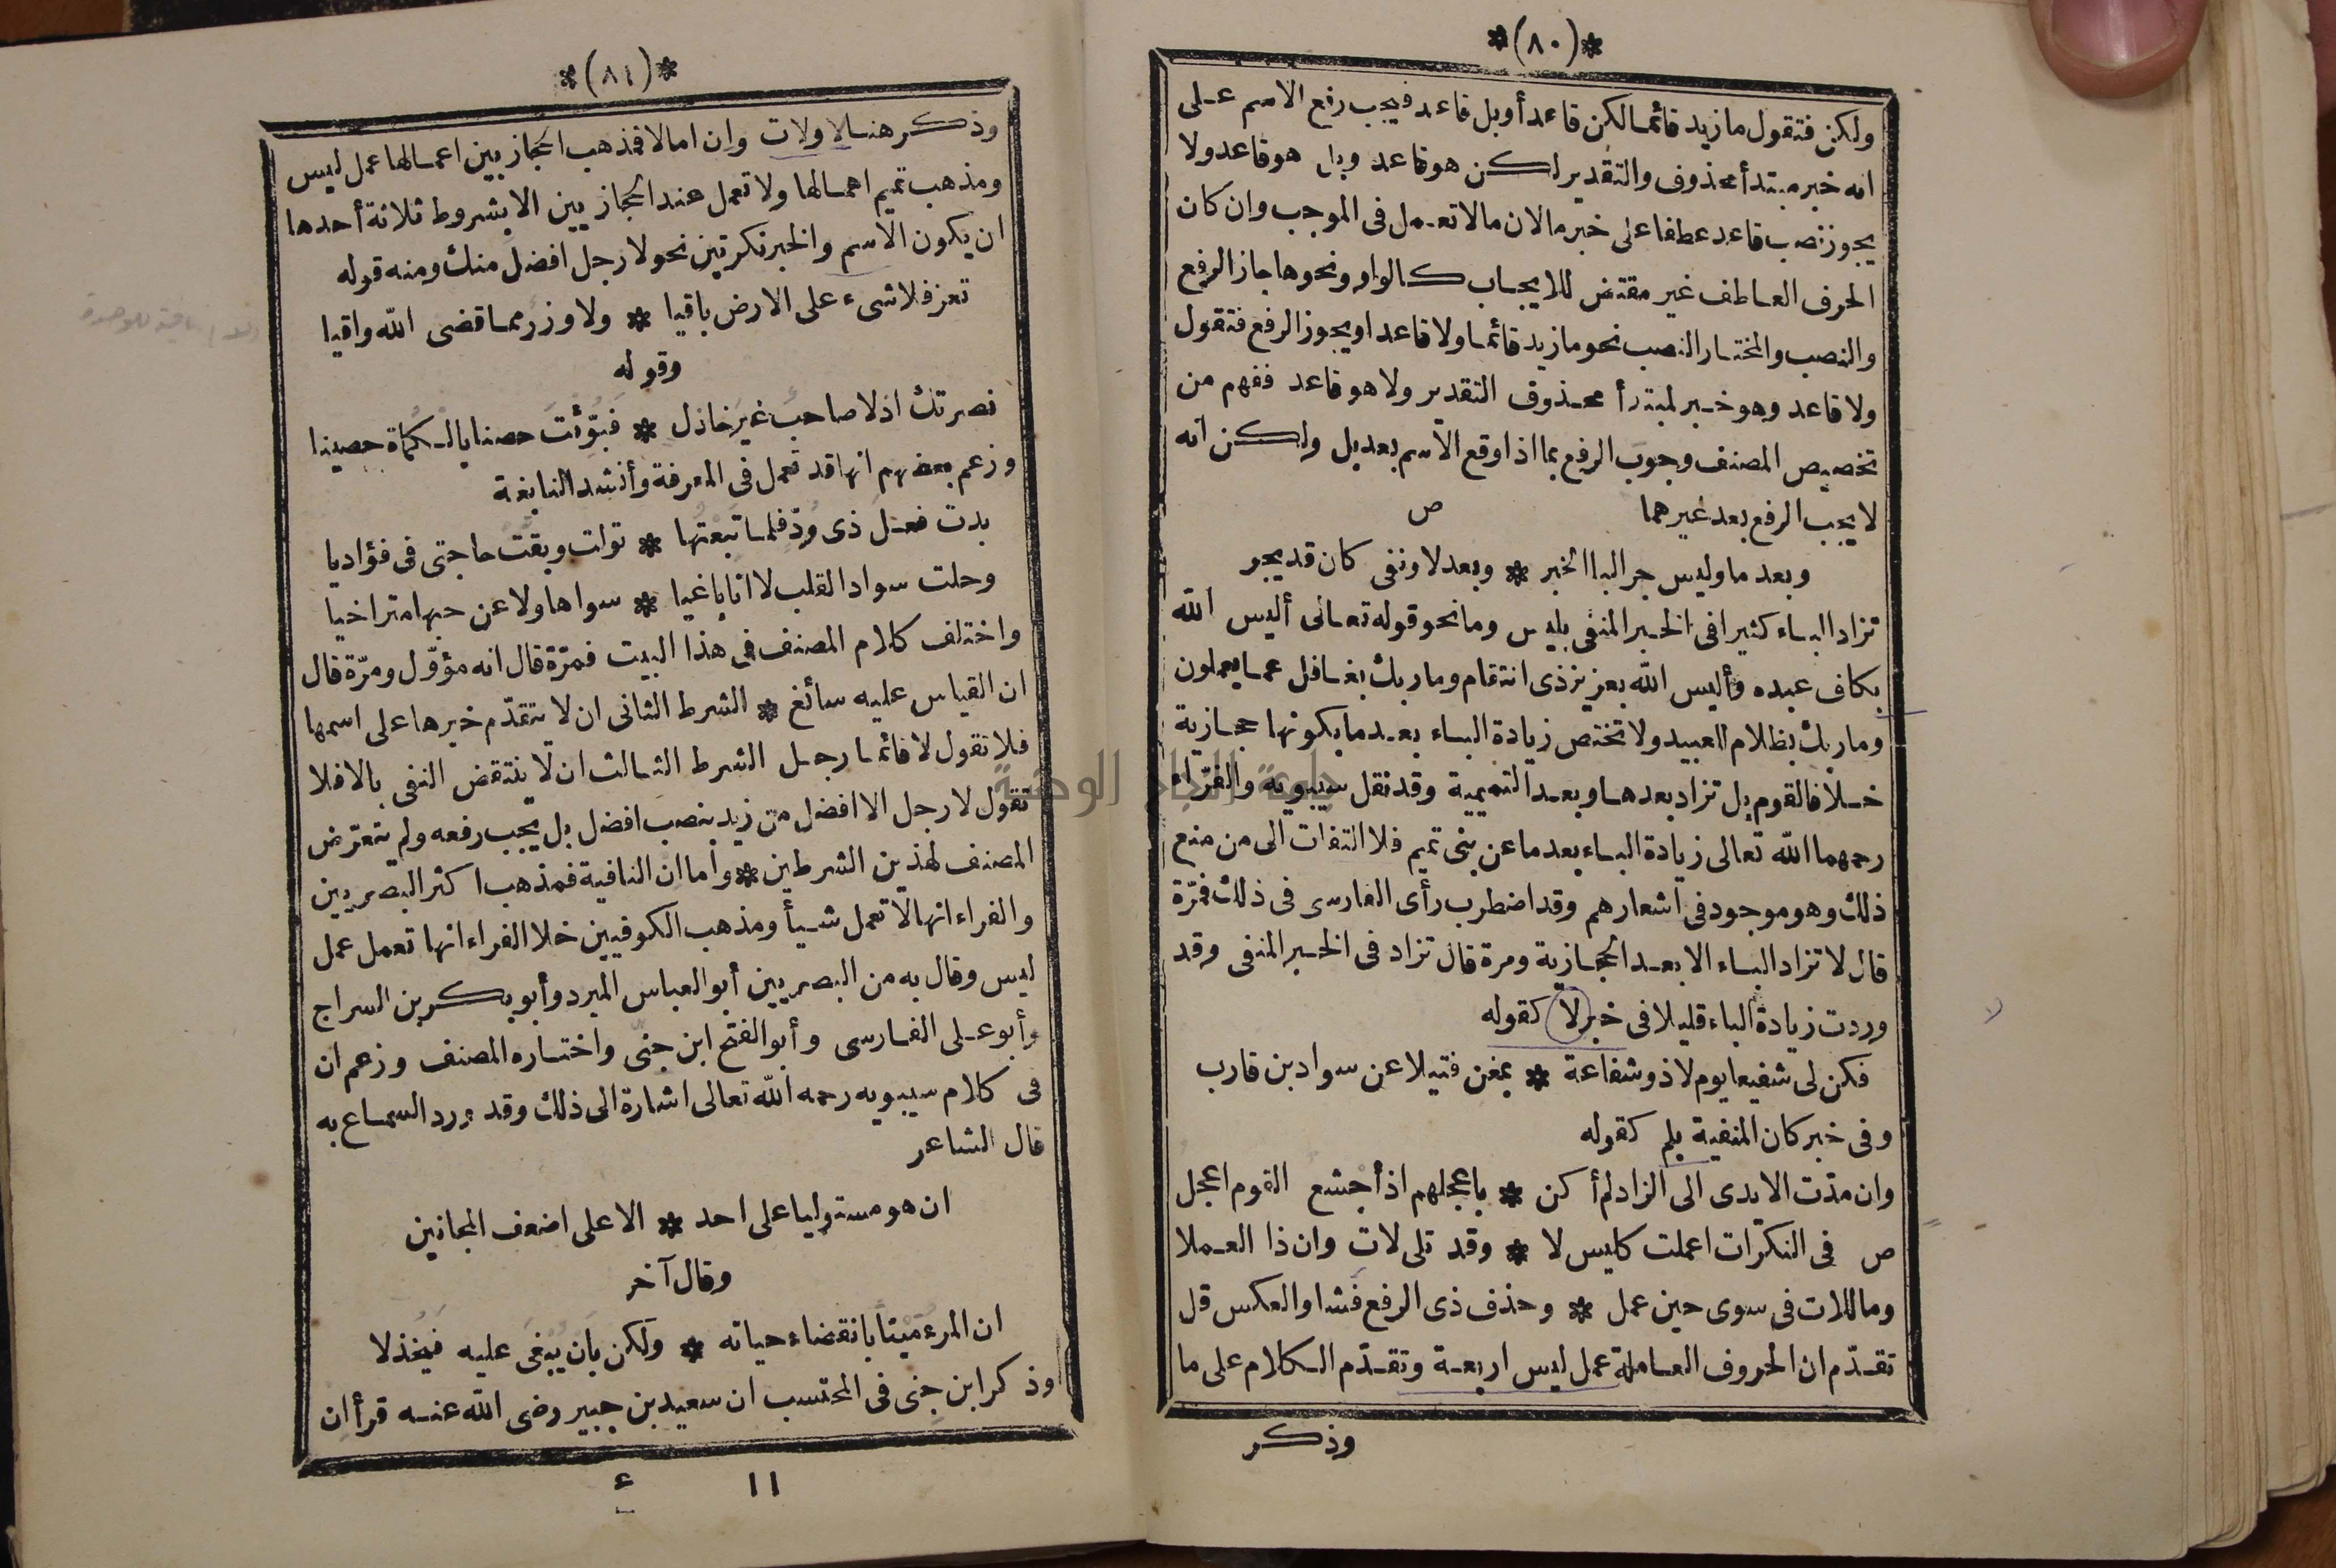 *(٨٠)*
ولكن فتقول ما زيد قائما لكن قاعد أو بل قاعد فيجب رفع الاسم على
انه خبر مبتدأ محذوف والتقدير لكن هو قاعد وبل هو قاعد ولا
يجوز نصب قاعد عطفا على خبر ما لان ما لا تعمل فى الموجب وان كان
الحرف العاطف غير مقتض للايجاب كالواو ونحوها جاز الرفع
والنصب والمختار النصب نحو ما زيد قائما ولا قاعدا ويجوز الرفع فتقول
ولا قاعد وهو خبر لمبتدأ محذوف التقدير ولا هو قاعد ففهم من
تخصيص المصنف وجوب الرفع بما اذا وقع الاسم بعد بل ولكن انه
لا يجب الرفع بعد غيرهما ص
وبعد ما وليس جر البا الخبر * وبعد لا ونفى كان قد يجر
تزاد الباء كثيرا فى الخبر المنفى بليس وما نحو قوله تعالى أليس الله
بكاف عبده وأليس الله بعزيز ذى انتقام وما ربك بغافل عما يعملون
وما ربك بظلام للعبيد ولا تختص زيادة الباء بعد ما بكونها حجازية
خلافا لقوم بل تزاد بعدها وبعد التميمية وقد نقل سيبويه والفرّاء
رحمهما الله تعالى زيادة الباء بعد ما عن بنى تميم فلا التفات الى من منع
ذلك وهو موجود فى اشعارهم وقد اضطرب رأى الفارسى فى ذلك فمرّة
قال لا تزاد الباء الا بعد الحجازية ومرة قال تزاد فى الخبر المنفى وقد
وردت زيادة الباء قليلا فى خبر لا كقوله
فكن لى شفيعا يوم لا ذو شفاعة * بمغن فتيلا عن سواد بن قارب
وفى خبر كان المنفية بلم كقوله
وان مدّت الايدى الى الزاد لم أكن * باعجلهم اذ أجشع القوم اعجل
ص فى النكرات اعملت كليس لا * وقد تلى لات وان ذا العملا
وما للات فى سوى حين عمل * وحذف ذى الرفع فشا والعكس قل
تقدّم ان الحروف العاملة عمل ليس اربعة وتقدّم الكلام على ما
وذكر
*(٨١)*
وذكر هنا لا ولات وان اما لا فمذهب الحجازيين اعمالها عمل ليس
ومذهب تميم اهمالها ولا تعمل عند الحجازيين الا بشروط ثلاثة أحدها
ان يكون الاسم والخبر نكرتين نحو لا رجل افضل منك ومنه قوله
تعز فلا شىء على الارض باقيا * ولا وزر مما قضى الله واقيا
وقوله
نصرتك اذ لا صاحبُ غيرَ خاذل * فَبُوّئْتَ حصنا بالكماة حصينا
وزعم بعضهم انها قد تعمل فى المعرفة وأنشد النابغة
بدت فعل ذى ودّ فلما تبعتها * تولت وبقّت حاجتى فى فؤاديا
وحلت سواد القلب لا انا باغيا * سواها ولا عن حبها متراخيا
واختلف كلام المصنف فى هذا البيت فمرّة قال انه مؤوّل ومرّة قال
ان القياس عليه سائغ * الشرط الثانى ان لا يتقدّم خبرها على اسمها
فلا تقول لا قائما رجل الشرط الثالث ان لا ينتقض النفى بالا فلا
تقول لا رجل الا افضل من زيد بنصب افضل بل يجب رفعه ولم يتعرّض
المصنف لهذين الشرطين * وأما ان النافية فمذهب اكثر البصريين
والفراء انها لا تعمل شيأ ومذهب الكوفيين خلا الفراء انها تعمل عمل
ليس وقال به من البصريين أبو العباس المبرد وأبو بكر بن السراج
وأبو على الفارسى وأبو الفتح ابن جنّى واختاره المصنف وزعم ان
فى كلام سيبويه رحمه الله تعالى اشارة الى ذلك وقد ورد السماع به
قال الشاعر
ان هو مستوليا على احد * الا على اضعف المجانين
وقال آخر
ان المرءُ ميْتا بانقضاء حياته * ولكن بان يُبْغَى عليه فيُخذلا
وذكر ابن جنى فى المحتسب ان سعيد بن جبير رضى الله عنه قرأ ان
١١ ع